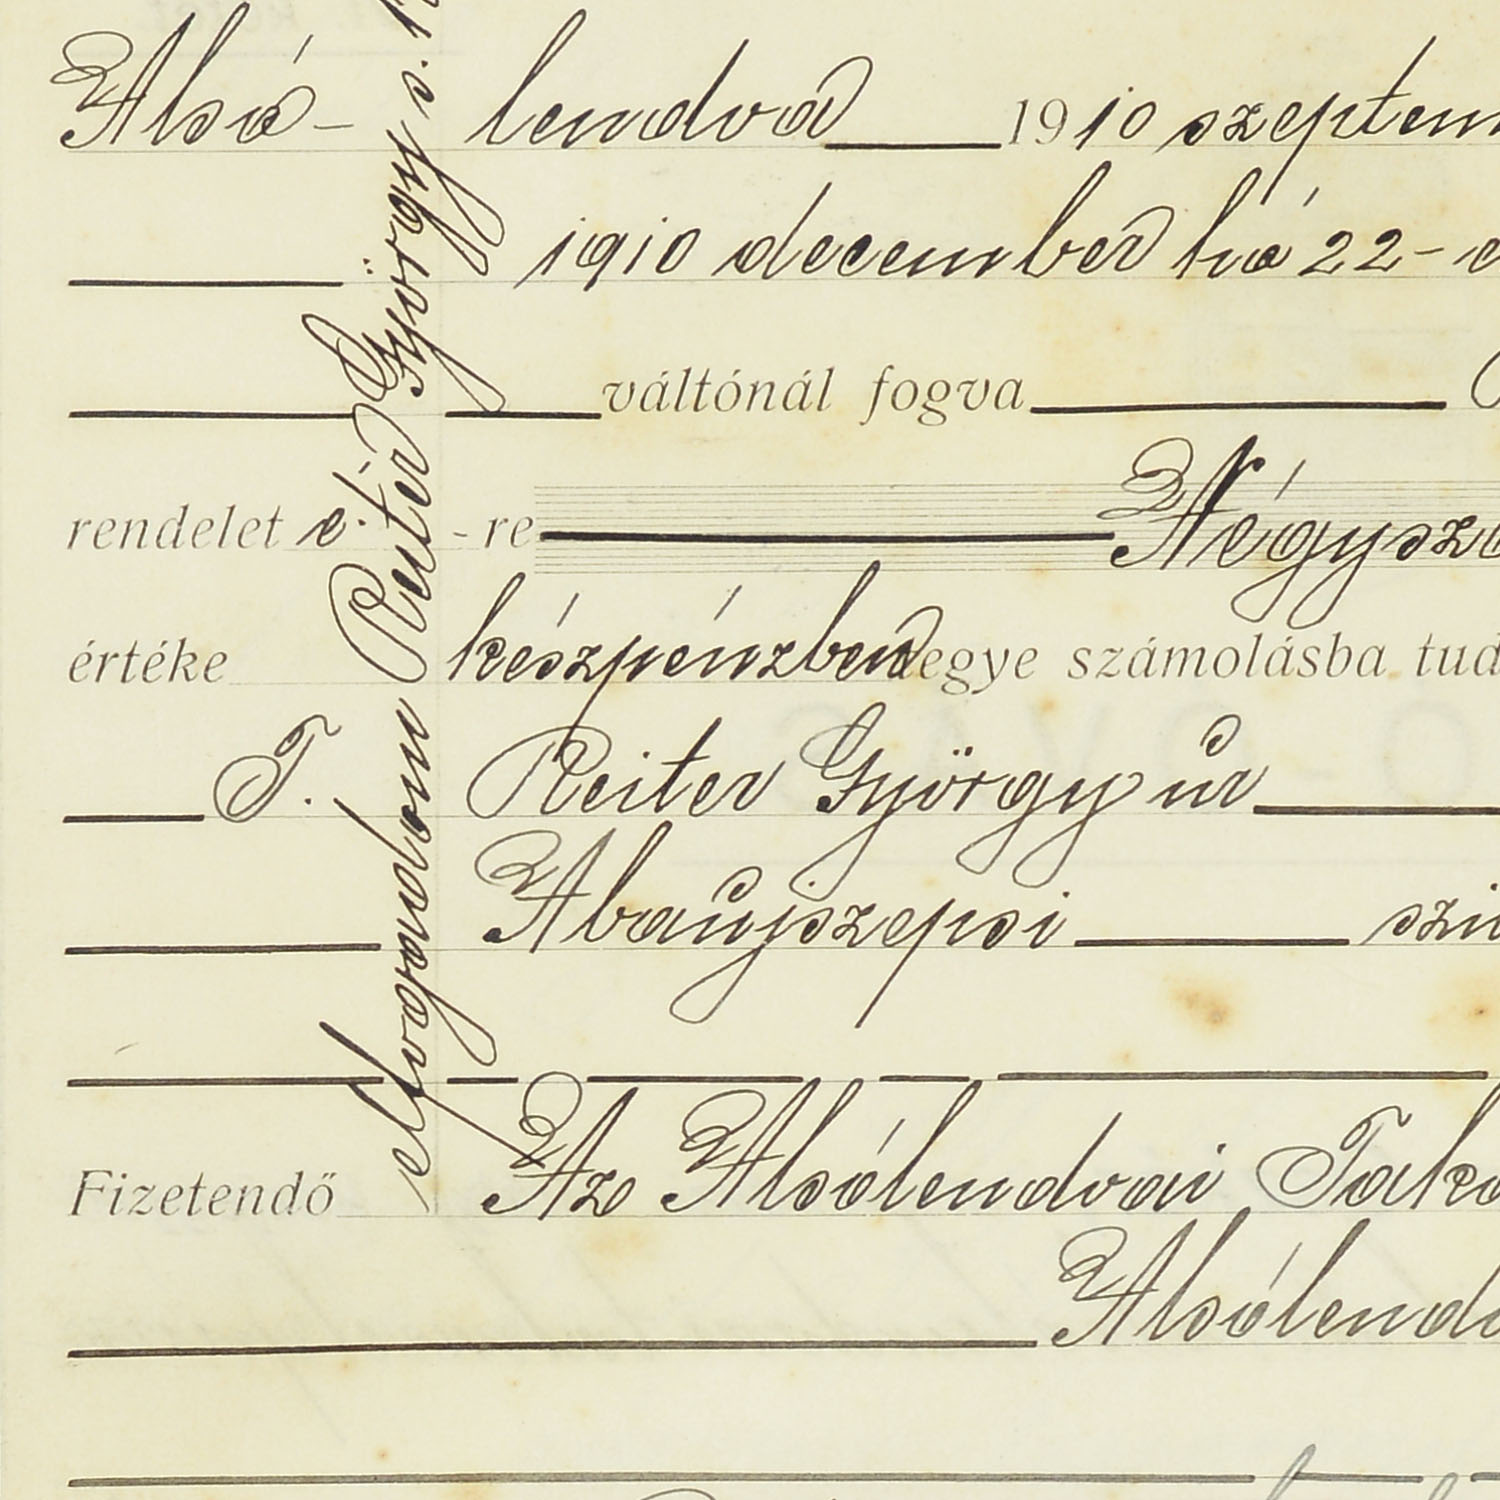 Alsó- lendva 1910 szeptem
1910 december hó 22-
váltónál fogva
rendelet e. -re Négysz
értéke készpénzben egye számolásba tud
T. Reiter György úr
Abaújszepsi
Fizetendő Az Alsólendvai Tak
Alsólend
elfogadom Reiter György s.